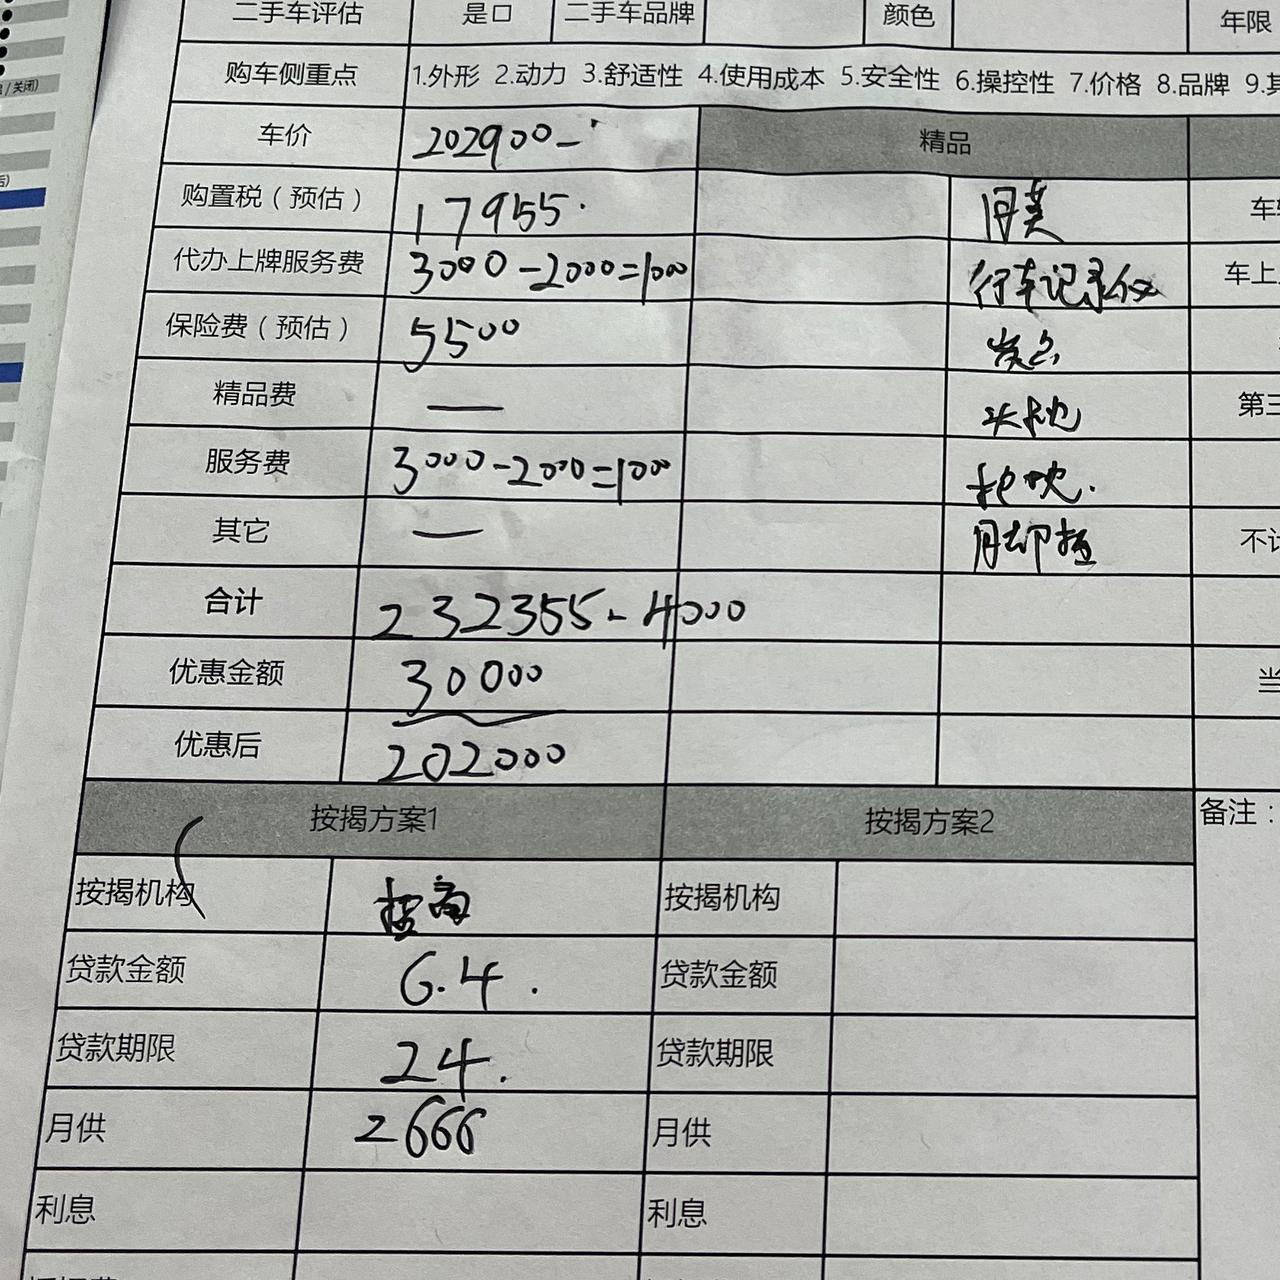 二手车评估 是□ 二手车品牌 颜色 年限
购车侧重点 1.外形 2.动力 3.舒适性 4.使用成本 5.安全性 6.操控性 7.价格 8.品牌 9.其
/关闭)
车价 202900- 精品
购置税（预估） 17955.
代办上牌服务费 3000-2000=1000 行车记录仪 车上
保险费（预估） 5500
精品费 — 头枕 第三
服务费 3000-2000=1000
其它 — 不计
合计 232355-4000
优惠金额 30000 当
优惠后 202000
按揭方案1 按揭方案2 备注：
按揭机构 按揭机构
贷款金额 6.4. 贷款金额
贷款期限 24. 贷款期限
月供 2666 月供
利息 利息